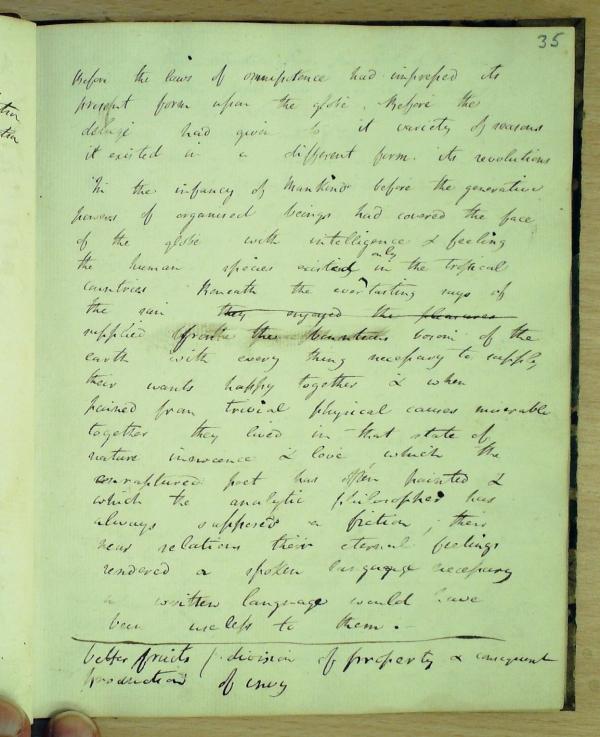 35
Before the laws of omnipotence had impressed its
present form upon the globe. Before the
deluge had given to it variety of seasons
it existed in a different form. its revolutions
In the infancy of Mankind before the generative
powers of organised beings had covered the face
of the globe with intelligence & feeling
the human species existed only in the tropical
countries Beneath the everlasting rays of
the sun they enjoyed the pleasures
supplied from the bounteous bosom of the
earth with every thing necessary to supply
their wants happy together & when
pained from trivial physical causes miserable
together they lived in that state of
nature innocence & love which the
enraptured poet has often painted &
which the analytic philosopher has
always supposed a fiction; their
near relations their eternal feelings
rendered a spoken language necessary
a written language would have
been useless to them.
better fruits division of property & consequent
production of envy